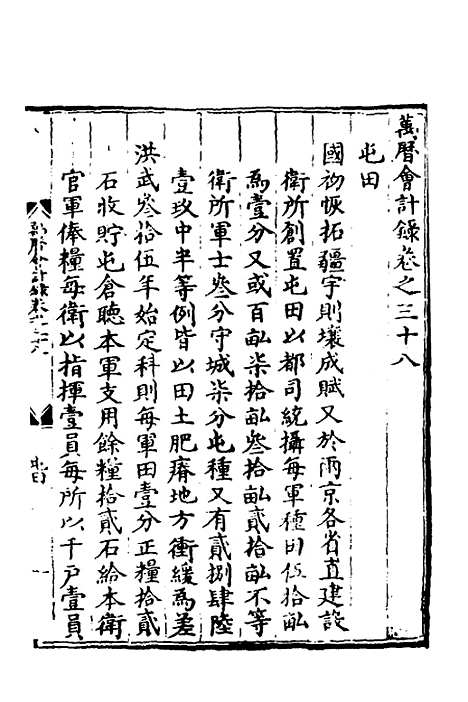 萬曆會計錄卷之三十八
屯田
國初恢拓疆宇則壤成賦又於兩京各省直建設
衛所創置屯田以都司統攝每軍種田伍拾畝
為壹分又或百畝柒拾畝叄拾畝貳拾畝不等
衛所軍士叄分守城柒分屯種又有貳捌肆陸
壹玖中半等例皆以田土肥瘠地方衝緩為差
洪武叄拾伍年始定科則每軍田壹分正糧拾貳
石收貯屯倉聽本軍支用餘糧拾貳石給本衛
官軍俸糧每衛以指揮壹員每所以千戶壹員
萬曆會計錄卷之三十八
屯田
一